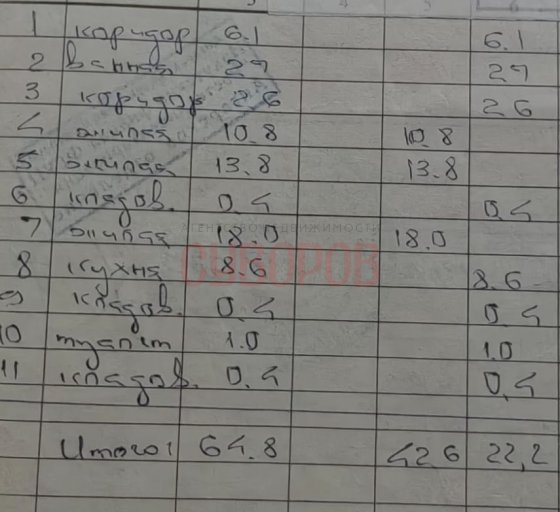 1 коридор 6.1 6.1
2 ванная 2.7 2.7
3 коридор 2.6 2.6
4 жилая 10.8 10.8
5 жилая 13.8 13.8
6 кладов. 0.4 0.4
7 жилая 18.0 18.0
АГЕНТСТВО НЕДВИЖИМОСТИ
СУВОРОВ
8 кухня 8.6 8.6
9 кладов. 0.4 0.4
10 туалет 1.0 1.0
11 кладов. 0.4 0.4
Итого: 64.8 42.6 22,2